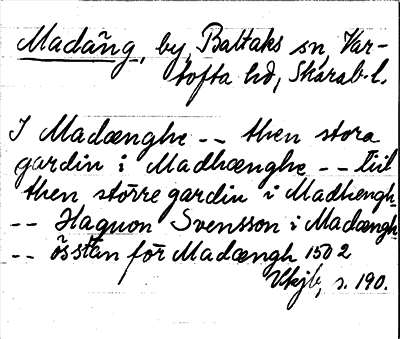 Madäng, by, Baltaks sn, Var-
tofta hd, Skarab. l.
I Madænghe -- then stora
gardin i Madhænghe -- Tiil
then större gardin i Madhengh
-- Haquon Svensson i Madængh
-- össtan för Madængh 1502
Vkjb, s. 190.